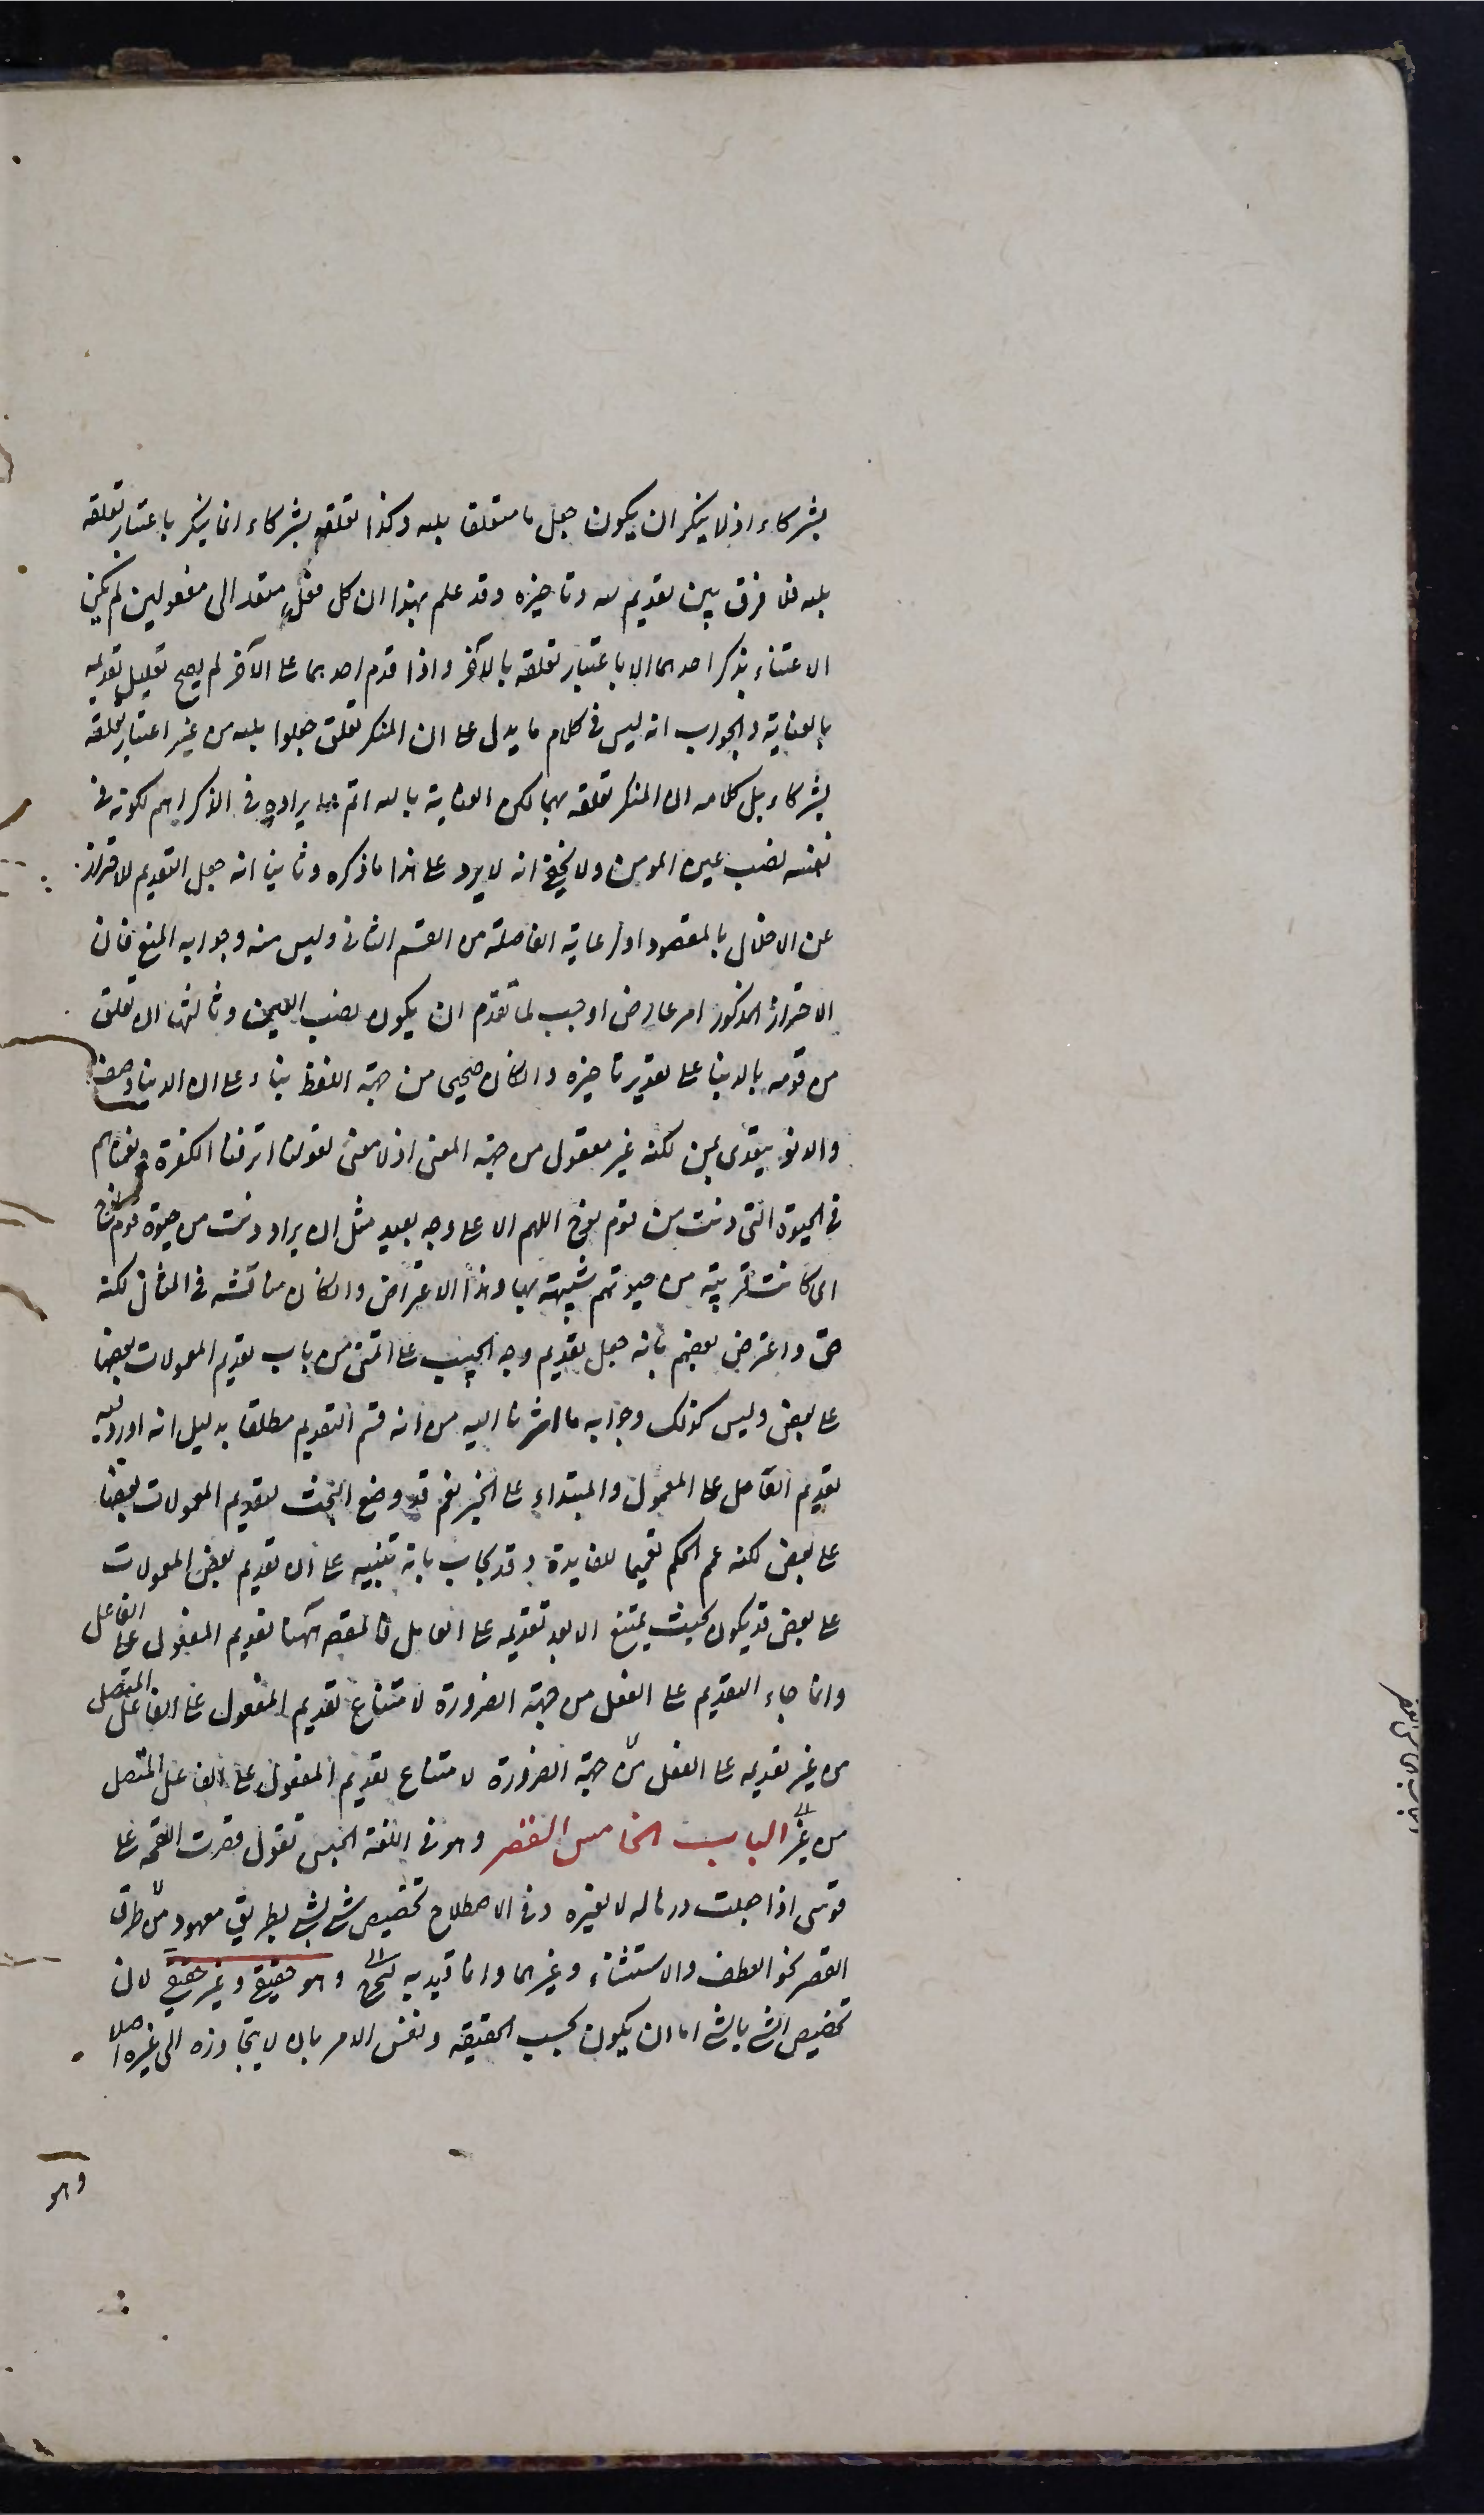 بشركاء اذ لا ينكر ان يكون جعل ما متعلقا بلله وكذا تعلقه بشركاء انما ينكر باعتبار تعلقه
بلله فلا فرق بين تقديم لله وتاخيره وقد علم بهذا ان كل فعل متعد الى مفعولين لم يكن
الاعتناء بذكر احدهما الا باعتبار تعلقه بالآخر واذا قدم احدهما على الآخر لم يصح تعليل تقديمه
بالعناية والجواب انه ليس فى كلام ما يدل على ان المنكر تعلق جعلوا بلله من غير اعتبار تعلقه
بشركاء بل كلامه ان المنكر تعلقه بهما لكن العناية بالله اتم وايراده فى الذكر اهم لكونه فى
نفسه نصب عين المومن ولا يخفى انه لا يرد على هذا ما ذكره وثانيا انه جعل التقديم للاحتراز
عن الاخلال بالمقصود او رعاية الفاصلة من القسم الثانى وليس منه وجوابه المنع فان
الاحتراز المذكور امر عارض اوجب لما تقدم ان يكون نصب العين وثالثها ان تعلق
من قومه بالدنيا على تقدير تاخيره وان كان صحيحا من جهة اللفظ بناء على ان الدنيا وصف
والدنو يتعدى بمن لكنه غير معقول من جهة المعنى اذ لا معنى لقولنا اترفنا الكفرة ونعمناهم
فى الحيوة التى دنت من قوم نوح اللهم الا على وجه بعيد مثل ان يراد دنت من حيوة قوم نوح
اى كانت قريبة من حيوتهم شبيهة بها وهذا الاعتراض وان كان مناقشة فى المثال لكنه
حق واعترض بعضهم بانه جعل تقديم وجه الحبيب على اتمنى من باب تقديم المعمولات بعضها
على بعض وليس كذلك وجوابه ما اشرنا اليه من انه قسم التقديم مطلقا بدليل انه اورد فيه
تقديم العامل على المعمول والمبتداء على الخبر نعم قد وضع البحث لتقديم المعمولات بعضها
على بعض لكنه عم الحكم تعميما للفايدة وقد يجاب بانه تنبيه على ان تقديم بعض المعمولات
على بعض قد يكون بحيث يمتنع الا بعد تقديمه على العامل فالمقصد ههنا تقديم المفعول على الفاعل
وانما جاء التقديم على الفعل من جهة الضرورة لامتناع تقديم المفعول على الفاعل المتصل
من غير تقديمه على الفعل من جهة الضرورة لامتناع تقديم المفعول على الفاعل المتصل
من غير الباب الخامس القصر وهو فى اللغة الحبس تقول قصرت اللقحة على
فرسى اذا جعلت درها له لا لغيره وفى الاصطلاح تخصيص شى بشى بطريق معهود من طرق
القصر نحو العطف والاستثناء وغيرهما وانما قيد به وهو حقيقى وغير حقيقى لان
تخصيص الشى بالشى اما ان يكون بحسب الحقيقه ونفس الامر بان لا يتجاوزه الى غيره اصلا
وهو
الباب الخامس القصر